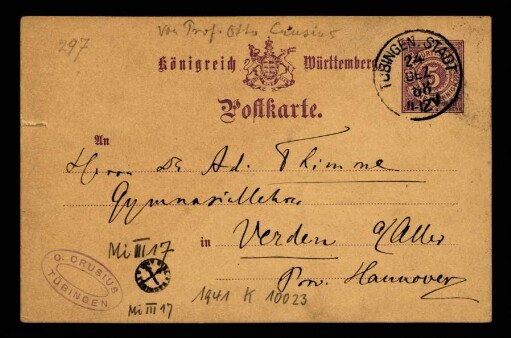 297
von Prof. Otto Crusius
Königreich Württemberg
TÜBINGEN. STADT
24
DEZ
88
5
Postkarte.
An
Herrn Dr Ad. Thimme
Gymnasiallehrer
in Verden a/Aller
Prov. Hannover
Mi III 17
O. CRUSIUS
TÜBINGEN
Mi III 17
1941 K 10023